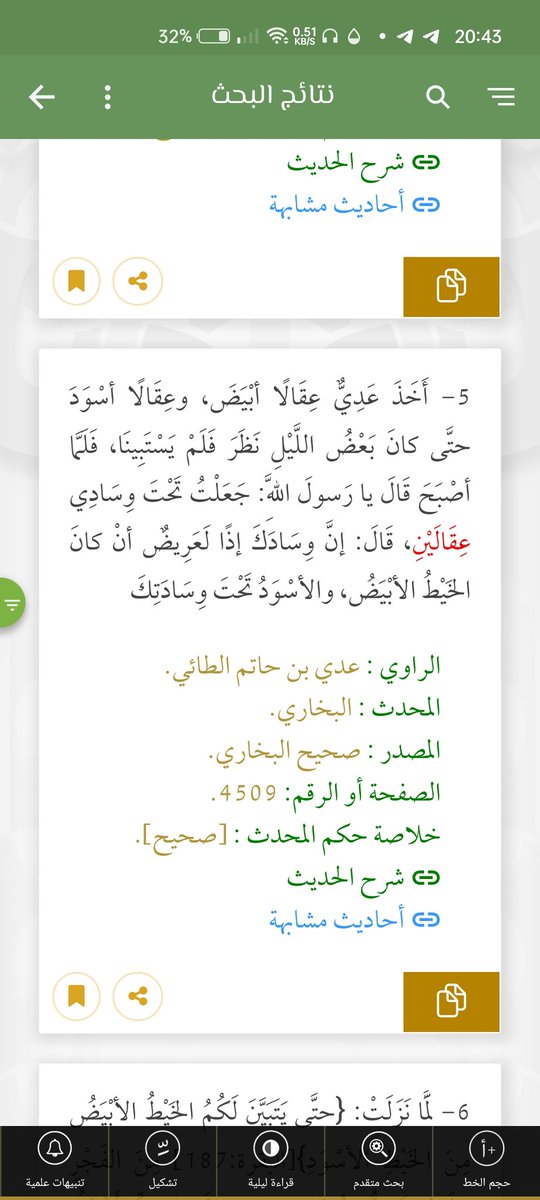 32% 0.51 KB/S 20:43
نتائج البحث
شرح الحديث
أحاديث مشابهة
5- أَخَذَ عَدِيٌّ عِقَالًا أبْيَضَ، وعِقَالًا أسْوَدَ
حتَّى كانَ بَعْضُ اللَّيْلِ نَظَرَ فَلَمْ يَسْتَبِينَا، فَلَمَّا
أصْبَحَ قَالَ يا رَسولَ اللَّهِ: جَعَلْتُ تَحْتَ وِسَادِي
عِقَالَيْنِ، قَالَ: إنَّ وِسَادَكَ إذًا لَعَرِيضٌ أنْ كانَ
الخَيْطُ الأبْيَضُ، والأسْوَدُ تَحْتَ وِسَادَتِكَ
الراوي : عدي بن حاتم الطائي.
المحدث : البخاري.
المصدر : صحيح البخاري.
الصفحة أو الرقم: 4509.
خلاصة حكم المحدث : [صحيح].
شرح الحديث
أحاديث مشابهة
6- لَمَّا نَزَلَتْ: {حتَّى يَتَبَيَّنَ لَكُمُ الخَيْطُ الأبْيَضُ
مِنَ الخَيْطِ الأسْوَدِ}[البقرة:187] مِنَ الفَجْرِ
حجم الخط
بحث متقدم
قراءة ليلية
تشكيل
تنبيهات علمية